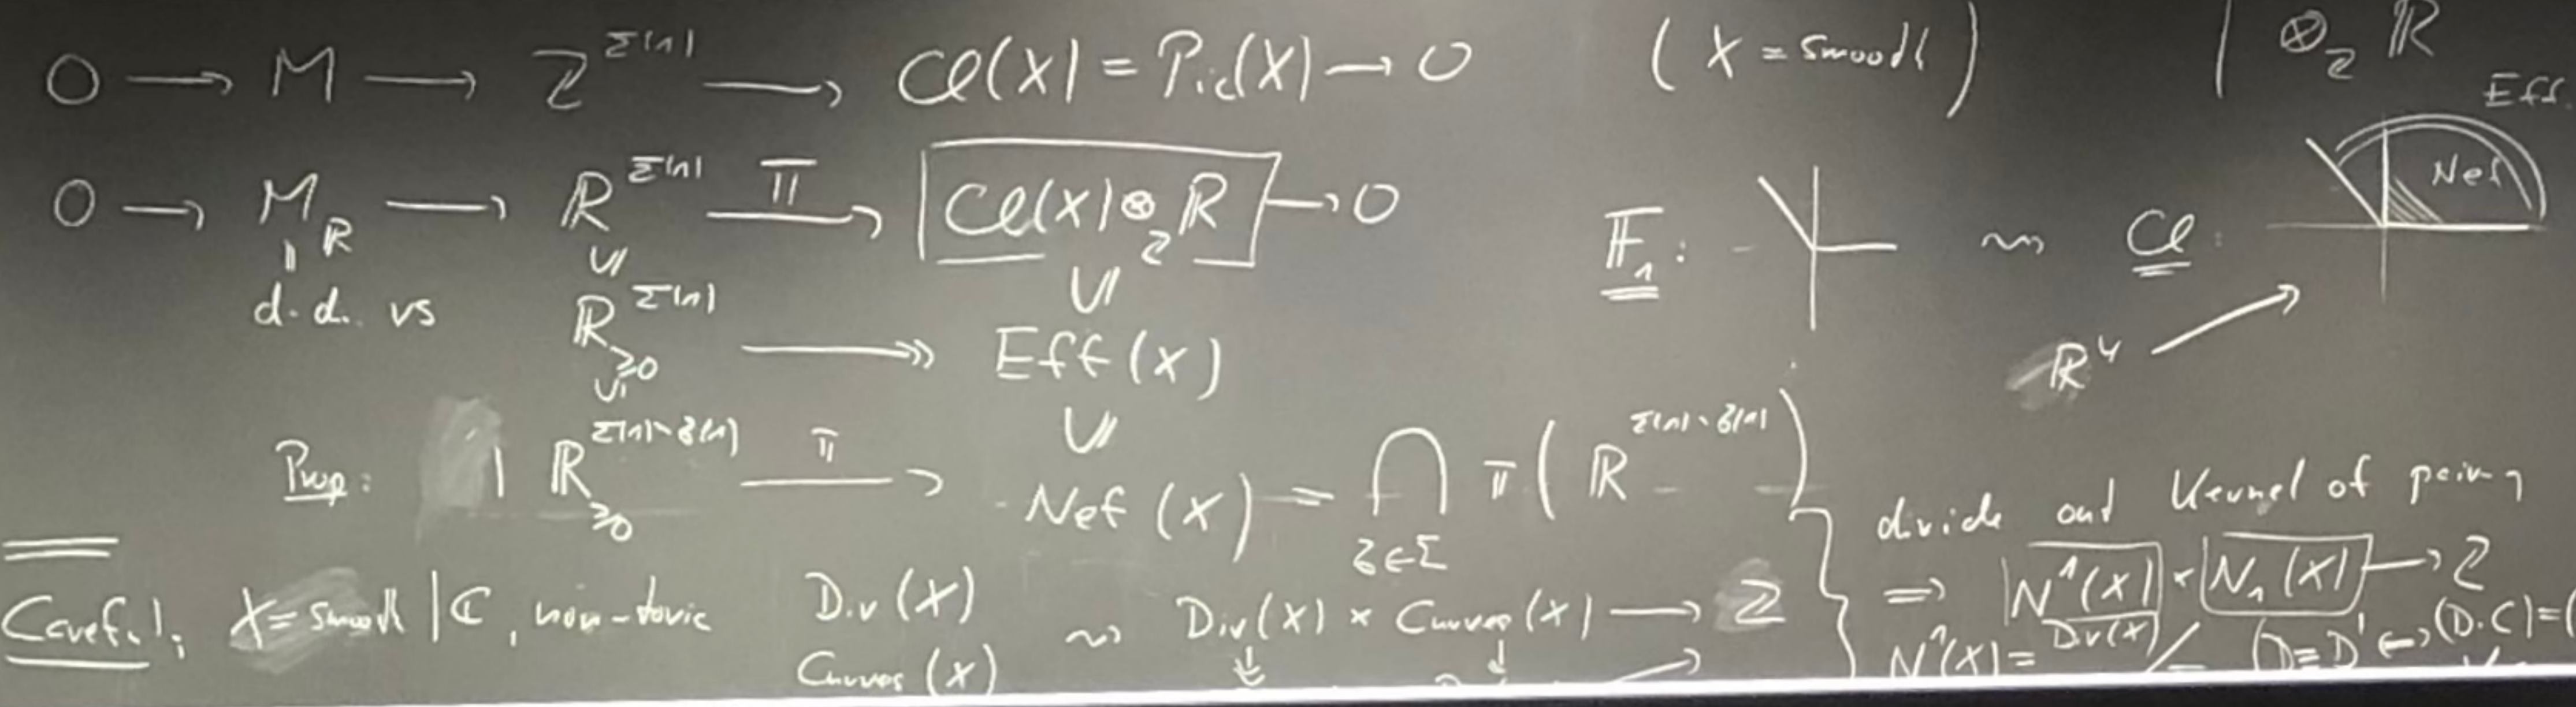 0 → M → Z^{Σ(1)} → Cl(X) = Pic(X) → 0 (X = smooth) | ⊗_Z R
0 → M_R → R^{Σ(1)} →^π Cl(X) ⊗_Z R → 0
Eff
Nef
F_1: ⇝ Cl:
∪|
∪|
d.d. vs R_{≥0}^{Σ(1)} ↠ Eff(X)
R^4
∪|
∪|
Prop: | R_{≥0}^{Σ(1)∖σ(1)} →^π Nef(X) = ⋂_{σ∈Σ} π(R^{Σ(1)∖σ(1)})
divide out Kernel of pairing
Careful: X = smooth | C, non-toric Div(X) ⇝ Div(X) × Curves(X) → Z
Curves(X)
⇒ N^1(X) × N_1(X) → Z
N^1(X) = Div(X)/≡ (D≡D' ↔ (D.C)=(